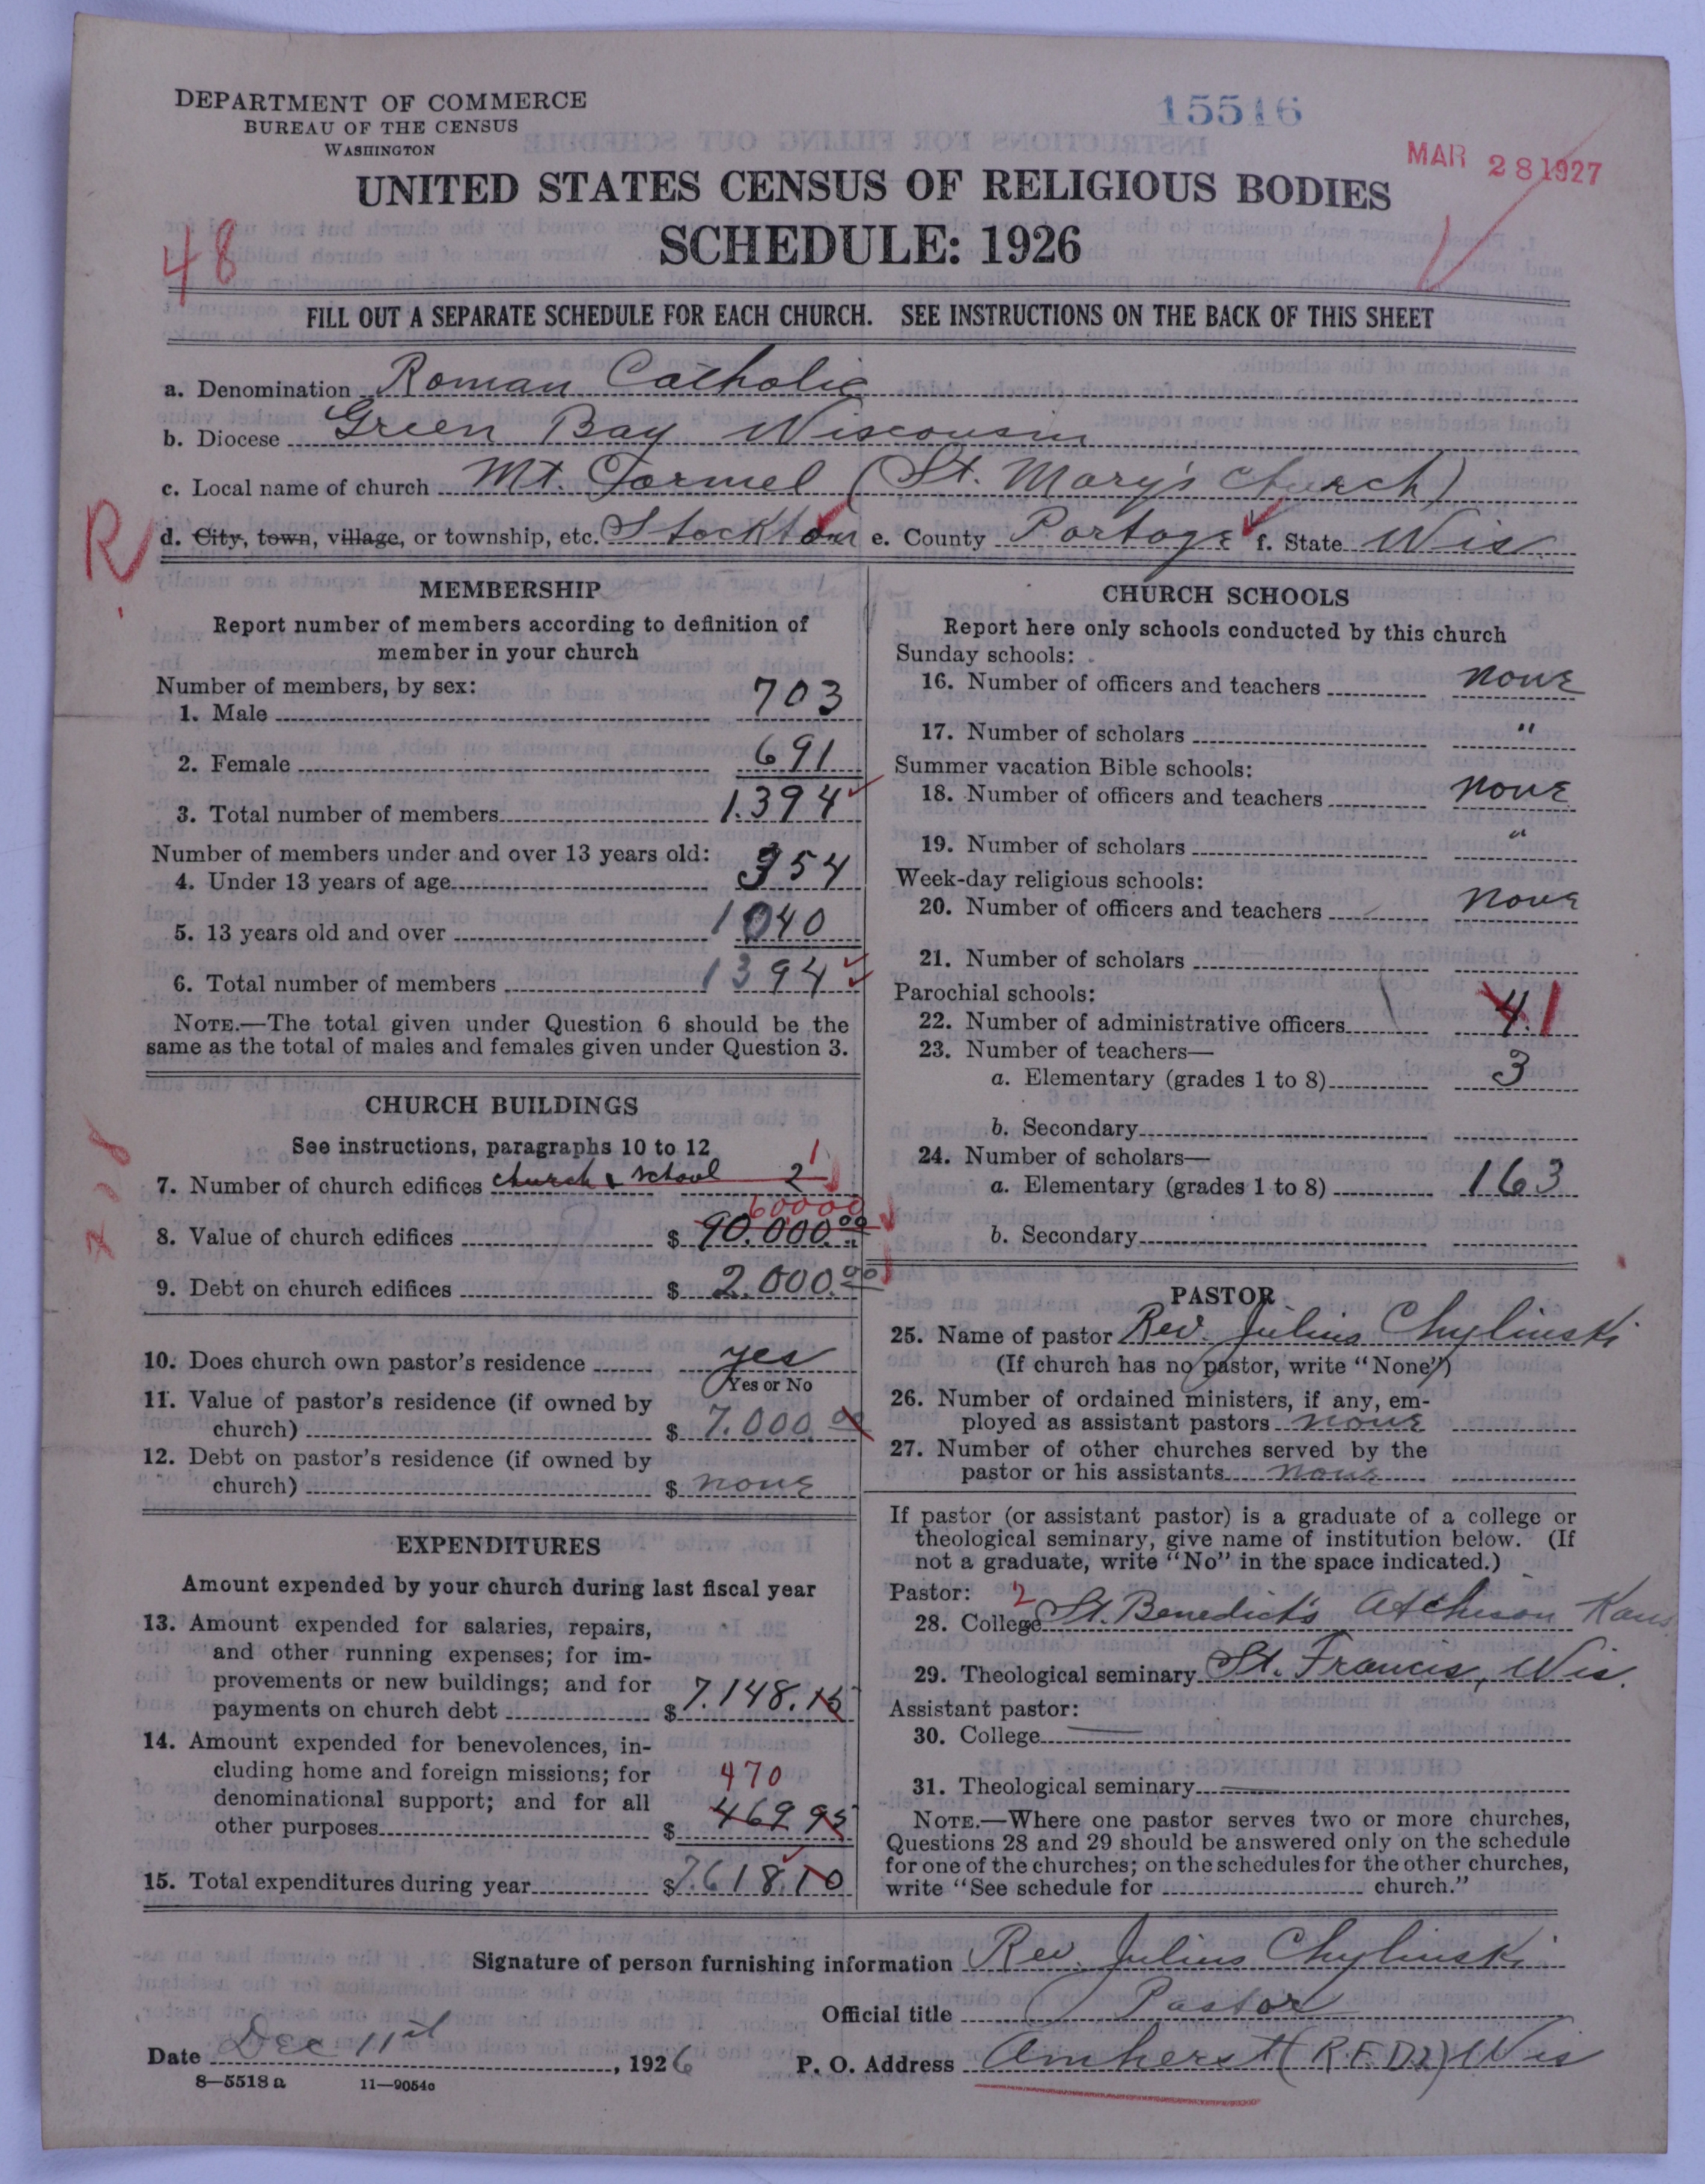 DEPARTMENT OF COMMERCE
BUREAU OF THE CENSUS
WASHINGTON
15516
MAR 28 1927
UNITED STATES CENSUS OF RELIGIOUS BODIES
SCHEDULE: 1926
48
FILL OUT A SEPARATE SCHEDULE FOR EACH CHURCH. SEE INSTRUCTIONS ON THE BACK OF THIS SHEET
a. Denomination Roman Catholic
b. Diocese Green Bay Wisconsin
c. Local name of church Mt. Carmel (St. Mary's Church)
R
d. City, town, village, or township, etc. Stockton e. County Portage f. State Wis.
MEMBERSHIP
Report number of members according to definition of
member in your church
Number of members, by sex:
1. Male 703
2. Female 691
3. Total number of members 1.394
Number of members under and over 13 years old:
4. Under 13 years of age 354
5. 13 years old and over 1040
6. Total number of members 1394
NOTE.—The total given under Question 6 should be the
same as the total of males and females given under Question 3.
CHURCH BUILDINGS
See instructions, paragraphs 10 to 12
7. Number of church edifices church & school 2 1
60000
8. Value of church edifices $ 90.000.00
9. Debt on church edifices $ 2.000.00
10. Does church own pastor's residence yes
Yes or No
11. Value of pastor's residence (if owned by
church) $ 7.000.00
12. Debt on pastor's residence (if owned by
church) $ none
EXPENDITURES
Amount expended by your church during last fiscal year
13. Amount expended for salaries, repairs,
and other running expenses; for im-
provements or new buildings; and for
payments on church debt $ 7.148.15
14. Amount expended for benevolences, in-
cluding home and foreign missions; for 470
denominational support; and for all
other purposes $ 469 95
15. Total expenditures during year $ 7.618.10
CHURCH SCHOOLS
Report here only schools conducted by this church
Sunday schools:
16. Number of officers and teachers none
17. Number of scholars "
Summer vacation Bible schools:
18. Number of officers and teachers none
19. Number of scholars "
Week-day religious schools:
20. Number of officers and teachers none
21. Number of scholars
Parochial schools:
22. Number of administrative officers 4. 1
23. Number of teachers—
a. Elementary (grades 1 to 8) 3
b. Secondary
24. Number of scholars—
a. Elementary (grades 1 to 8) 163
b. Secondary
PASTOR
25. Name of pastor Rev. Julius Chylinski
(If church has no pastor, write "None")
26. Number of ordained ministers, if any, em-
ployed as assistant pastors none
27. Number of other churches served by the
pastor or his assistants none
If pastor (or assistant pastor) is a graduate of a college or
theological seminary, give name of institution below. (If
not a graduate, write "No" in the space indicated.)
Pastor: 2
28. College St. Benedict's Atchison Kans.
29. Theological seminary St. Francis, Wis.
Assistant pastor:
30. College
31. Theological seminary
NOTE.—Where one pastor serves two or more churches,
Questions 28 and 29 should be answered only on the schedule
for one of the churches; on the schedules for the other churches,
write "See schedule for church."
Signature of person furnishing information Rev. Julius Chylinski
Official title Pastor
Date Dec 11st, 1926 P. O. Address Amherst (R.F.D2) Wis
8—5518 a 11—9054c